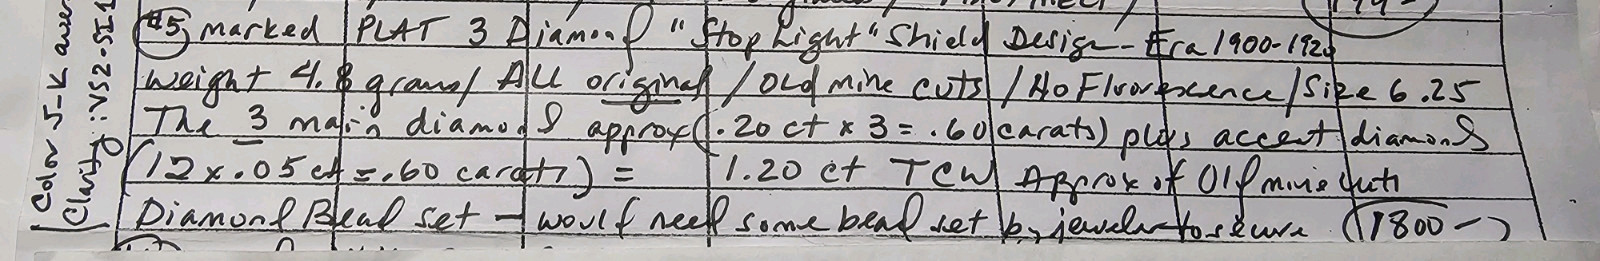 #5 marked PLAT 3 Diamond "Stop Light" Shield Design - Era 1900-1920
weight 4.8 grams/ All original / Old mine cuts / No Fluorescence / Size 6.25
The 3 main diamonds approx (.20 ct x 3 = .60 carats) plus accent diamonds
(12 x .05 ct = .60 carats) = 1.20 ct TCW Approx of Old mine cuts
Diamond Bead set - would need some bead set by jeweler to secure (1800-)
Color J-K
Clarity: VS2-SI1